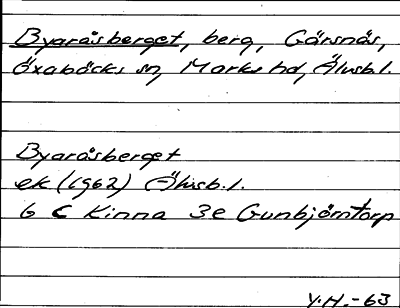 Byaråsberget, berg, Gärsnäs,
Öxabäcks sn, Marks hd, Älvsb.l.
Byaråsberget
ek (1962) Älvsb.l.
6 C Kinna 3e Gunbjörntorp
Y.H.-63